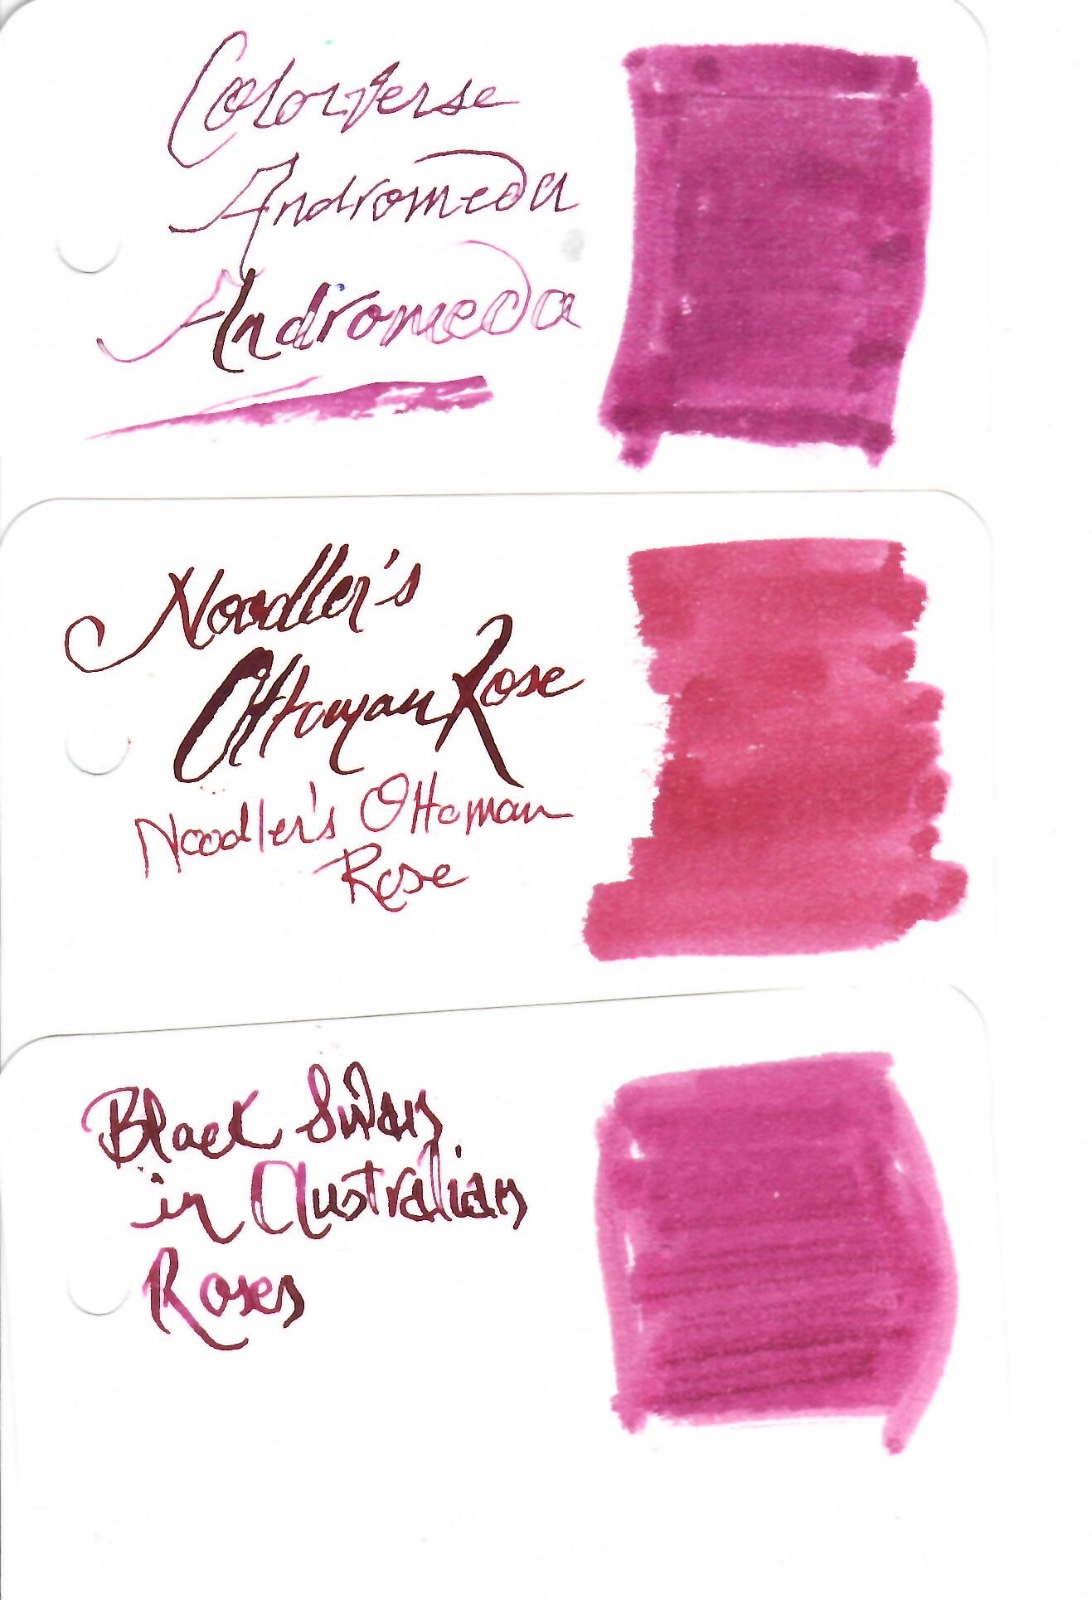 Colorverse
Andromeda
Andromeda
Noodler's
Ottoman Rose
Noodler's Ottoman
Rose
Black Swan
in Australian
Roses